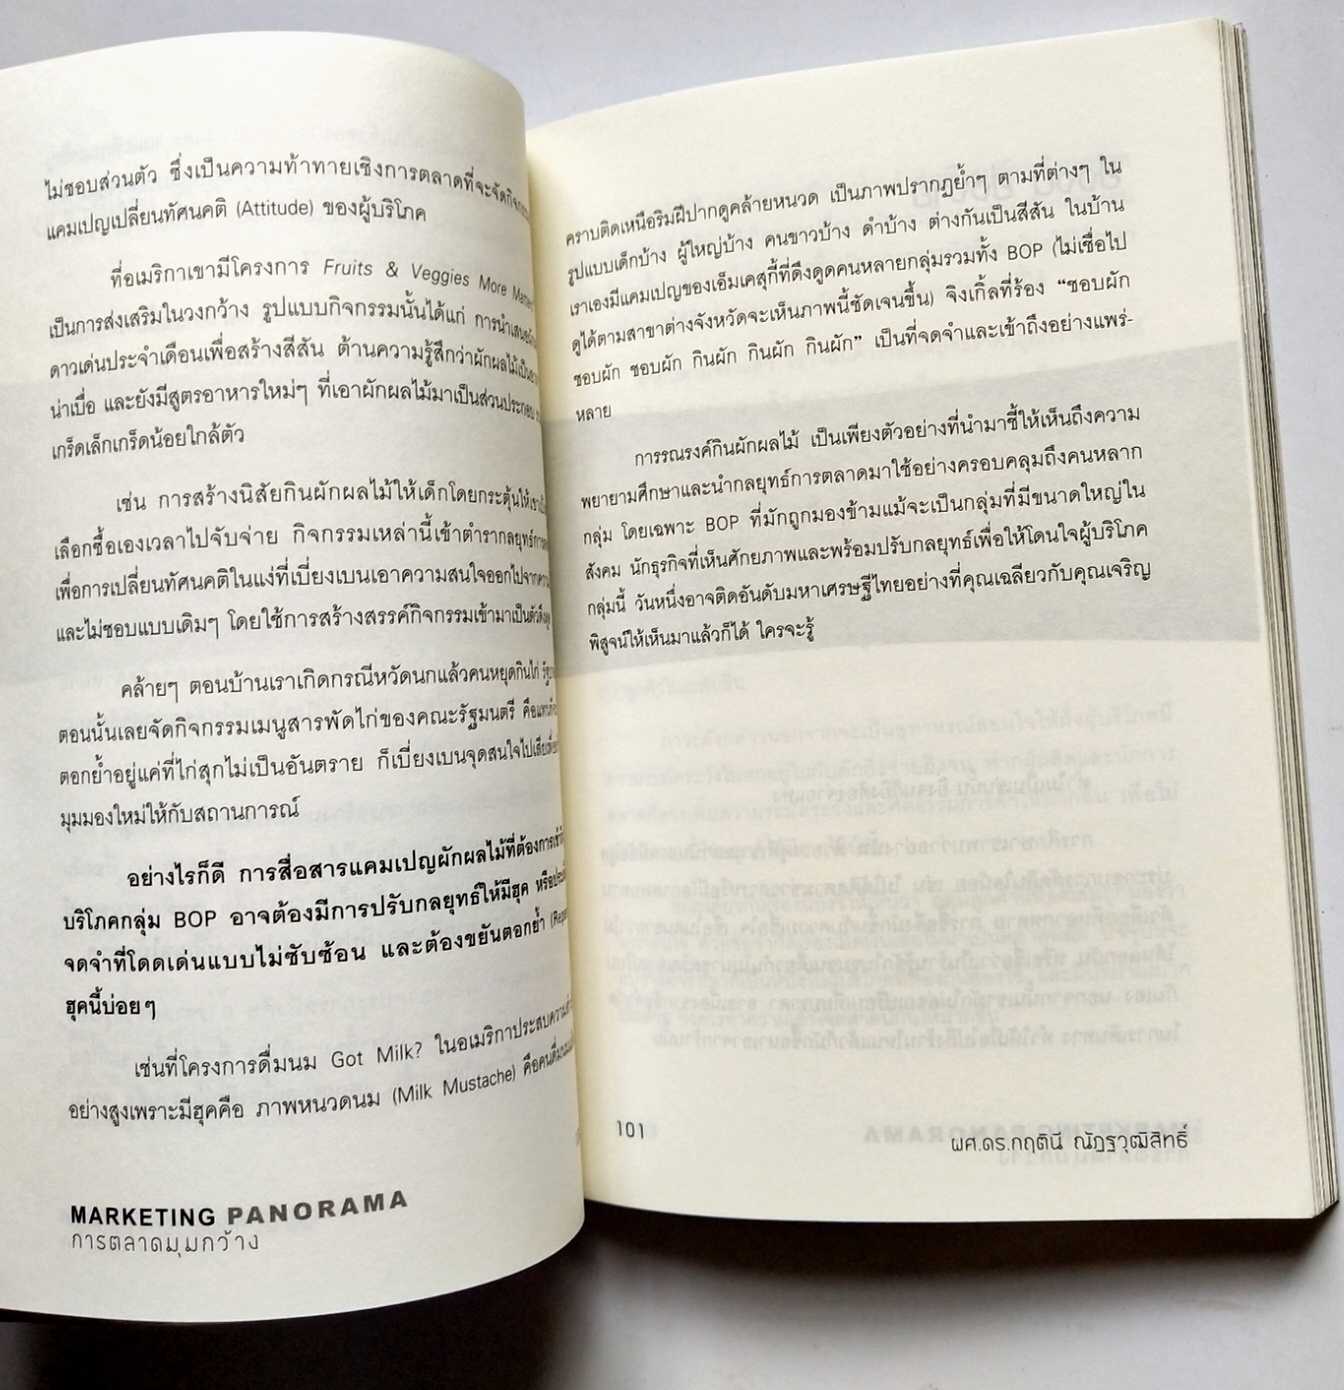 ไม่ชอบส่วนตัว ซึ่งเป็นความท้าทายเชิงการตลาดที่จะจัดกิจกรรม
แคมเปญเปลี่ยนทัศนคติ (Attitude) ของผู้บริโภค
ที่อเมริกาเขามีโครงการ Fruits & Veggies More Matters
เป็นการส่งเสริมในวงกว้าง รูปแบบกิจกรรมนั้นได้แก่ การนำเสนอ
ดาวเด่นประจำเดือนเพื่อสร้างสีสัน ต้านความรู้สึกว่าผักผลไม้เป็น
น่าเบื่อ และยังมีสูตรอาหารใหม่ๆ ที่เอาผักผลไม้มาเป็นส่วนประกอบ
เกร็ดเล็กเกร็ดน้อยใกล้ตัว
เช่น การสร้างนิสัยกินผักผลไม้ให้เด็กโดยกระตุ้นให้
เลือกซื้อเองเวลาไปจับจ่าย กิจกรรมเหล่านี้เข้าตำรากลยุทธ์
เพื่อการเปลี่ยนทัศนคติในแง่ที่เบี่ยงเบนเอาความสนใจออกไปจาก
และไม่ชอบแบบเดิมๆ โดยใช้การสร้างสรรค์กิจกรรมเข้ามาเป็นตัว
คล้ายๆ ตอนบ้านเราเกิดกรณีหวัดนกแล้วคนหยุดกินไก่
ตอนนั้นเลยจัดกิจกรรมเมนูสารพัดไก่ของคณะรัฐมนตรี คือ
ตอกย้ำอยู่แค่ที่ไก่สุกไม่เป็นอันตราย ก็เบี่ยงเบนจุดสนใจไป
มุมมองใหม่ให้กับสถานการณ์
อย่างไรก็ดี การสื่อสารแคมเปญผักผลไม้ที่ต้องการ
บริโภคกลุ่ม BOP อาจต้องมีการปรับกลยุทธ์ให้มีฮุค หรือ
จดจำที่โดดเด่นแบบไม่ซับซ้อน และต้องขยันตอกย้ำ
ฮุคนี้บ่อยๆ
เช่นที่โครงการดื่มนม Got Milk? ในอเมริกาประสบความ
อย่างสูงเพราะมีฮุคคือ ภาพหนวดนม (Milk Mustache) คือคนดื่มนม
MARKETING PANORAMA
การตลาดมุมกว้าง
คราบติดเหนือริมฝีปากดูคล้ายหนวด เป็นภาพปรากฏย้ำๆ ตามที่ต่างๆ ใน
รูปแบบเด็กบ้าง ผู้ใหญ่บ้าง คนขาวบ้าง ดำบ้าง ต่างกันเป็นสีสัน ในบ้าน
เราเองมีแคมเปญของเอ็มเคสุกี้ที่ดึงดูดคนหลายกลุ่มรวมทั้ง BOP (ไม่เชื่อไป
ดูได้ตามสาขาต่างจังหวัดจะเห็นภาพนี้ชัดเจนขึ้น) จิงเกิ้ลที่ร้อง “ชอบผัก
ชอบผัก ชอบผัก กินผัก กินผัก กินผัก” เป็นที่จดจำและเข้าถึงอย่างแพร่-
หลาย
การรณรงค์กินผักผลไม้ เป็นเพียงตัวอย่างที่นำมาชี้ให้เห็นถึงความ
พยายามศึกษาและนำกลยุทธ์การตลาดมาใช้อย่างครอบคลุมถึงคนหลาก
กลุ่ม โดยเฉพาะ BOP ที่มักถูกมองข้ามแม้จะเป็นกลุ่มที่มีขนาดใหญ่ใน
สังคม นักธุรกิจที่เห็นศักยภาพและพร้อมปรับกลยุทธ์เพื่อให้โดนใจผู้บริโภค
กลุ่มนี้ วันหนึ่งอาจติดอันดับมหาเศรษฐีไทยอย่างที่คุณเฉลียวกับคุณเจริญ
พิสูจน์ให้เห็นมาแล้วก็ได้ ใครจะรู้
101
ผศ.ดร.กฤตินี ณัฏฐวุฒิสิทธิ์